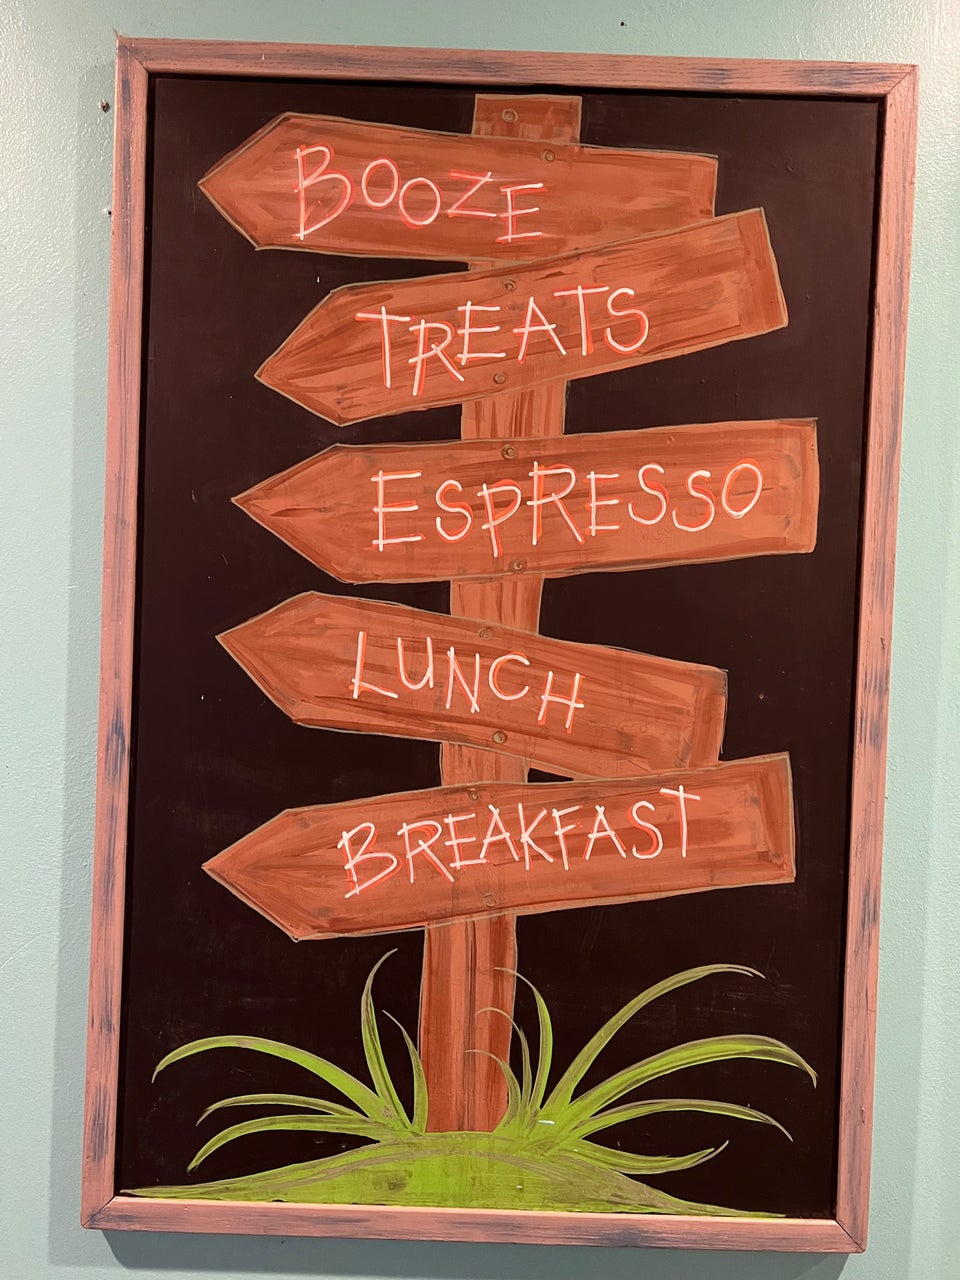 BOOZE
TREATS
ESPRESSO
LUNCH
BREAKFAST